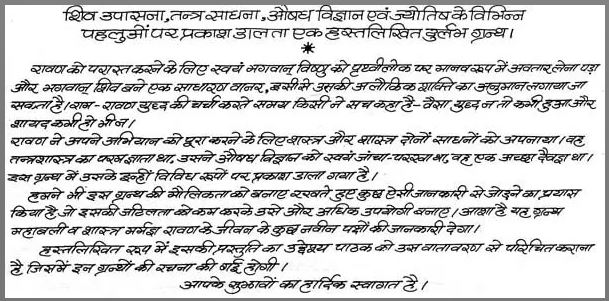 शिव उपासना, तन्त्र साधना, औषध विज्ञान एवं ज्योतिष के विभिन्न
पहलुओं पर प्रकाश डालता एक हस्तलिखित दुर्लभ ग्रन्थ।
*
रावण को परास्त करने के लिए स्वयं भगवान् विष्णु को पृथ्वीलोक पर मानव रूप में अवतार लेना पड़ा
और भगवान् शिव बने एक साधारण वानर, इसी से उसकी अलौकिक शक्ति का अनुमान लगाया जा
सकता है। राम-रावण युद्ध की चर्चा करते समय किसी ने सच कहा है- वैसा युद्ध न तो कभी हुआ और
शायद कभी हो भी न।
रावण ने अपने अभियान को पूरा करने के लिए शस्त्र और शास्त्र दोनों साधनों को अपनाया। वह
तन्त्रशास्त्र का परम ज्ञाता था, उसने औषध विज्ञान को स्वयं जांचा-परखा था, वह एक अच्छा दैवज्ञ था।
इस ग्रन्थ में उसके इन्हीं विविध रूपों पर प्रकाश डाला गया है।
हमने भी इस ग्रन्थ की मौलिकता को बनाए रखते हुए कुछ ऐसी जानकारी से जोड़ने का प्रयास
किया है जो इसकी जटिलता को कम करके उसे और अधिक उपयोगी बनाए। आशा है यह ग्रन्थ
महाबली व शास्त्र मर्मज्ञ रावण के जीवन के कुछ नवीन पक्षों की जानकारी देगा।
हस्तलिखित रूप में इसकी प्रस्तुति का उद्देश्य पाठक को उस वातावरण से परिचित कराना
है जिसमें इन ग्रन्थों की रचना की गई होगी।
आपके सुझावों का हार्दिक स्वागत है।